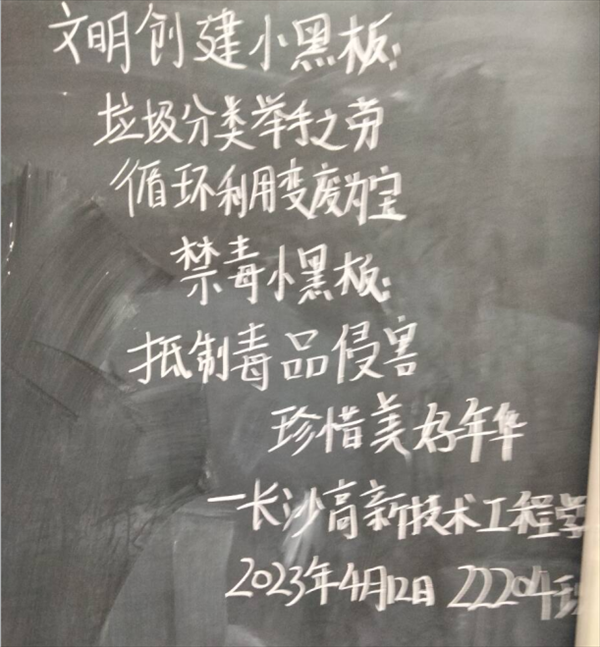 文明创建小黑板:
垃圾分类举手之劳
循环利用变废为宝
禁毒小黑板:
抵制毒品侵害
珍惜美好年华
一长沙高新技术工程学
2023年4月12日 22204